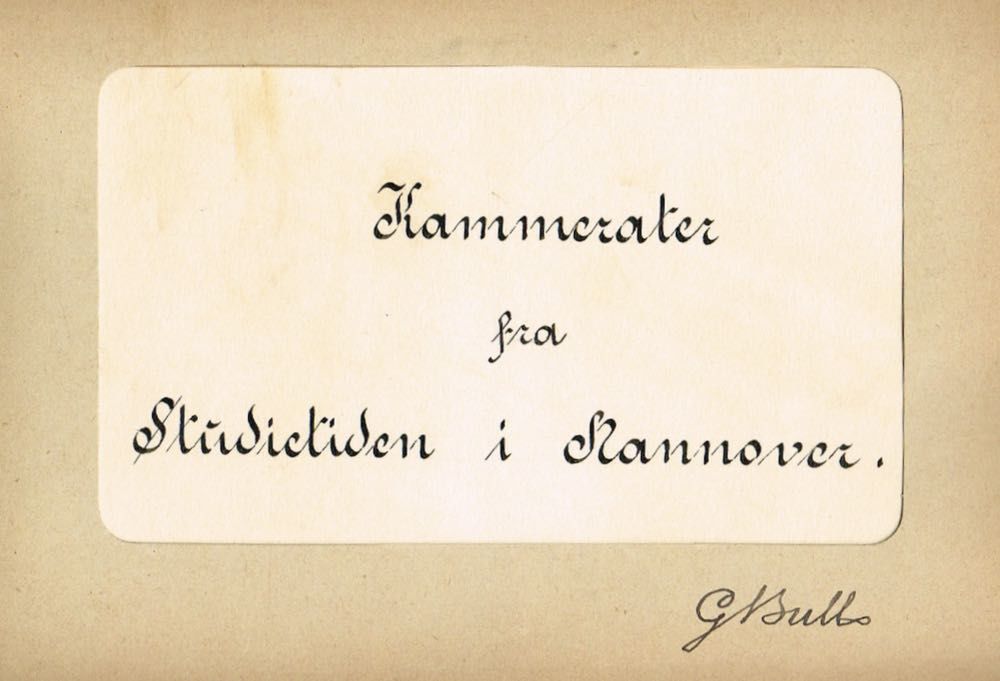 Kammerater
fra
Studietiden i Hannover.
GBulls